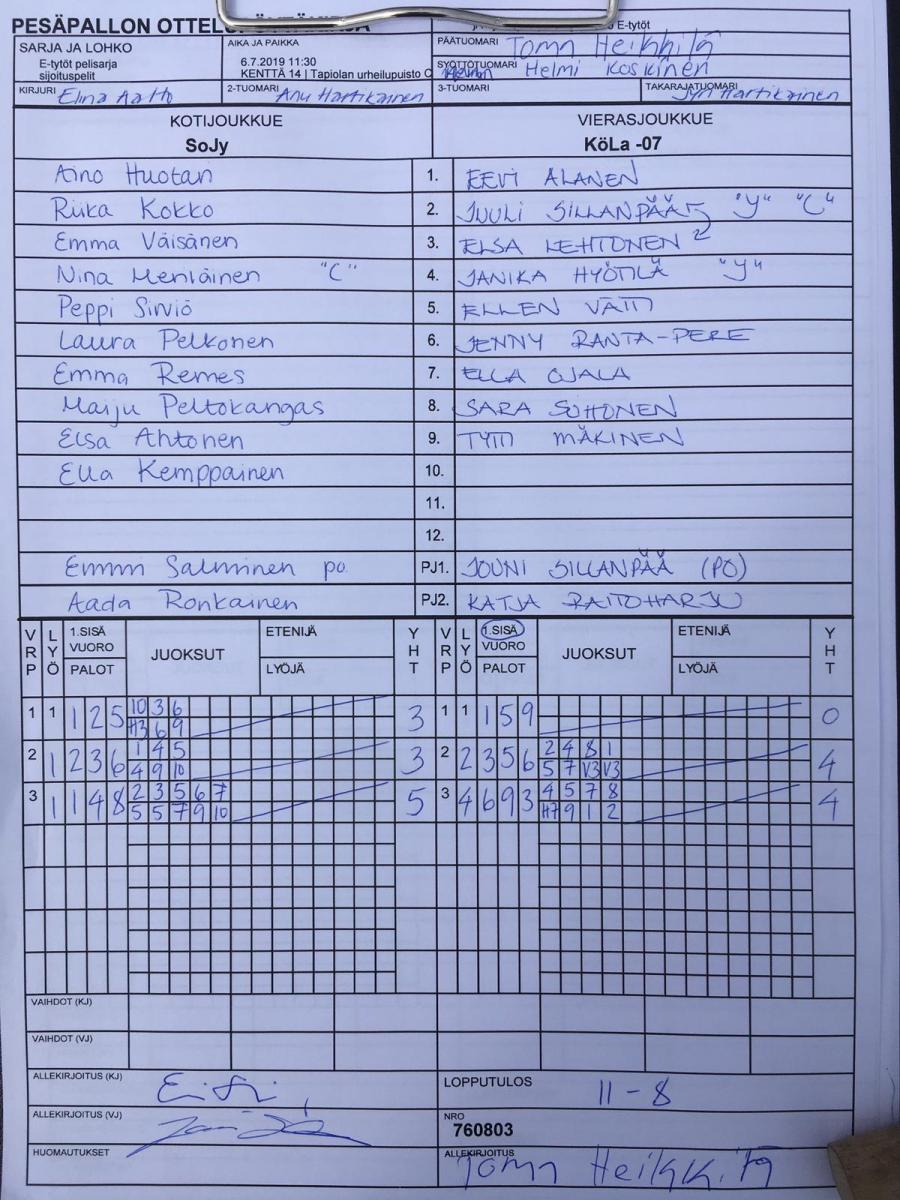 PESÄPALLON OTTELU
E-tytöt
SARJA JA LOHKO
E-tytöt pelisarja
sijoituspelit
AIKA JA PAIKKA
6.7.2019 11:30
KENTTÄ 14 | Tapiolan urheilupuisto
PÄÄTUOMARI Tomn Heikkilä
SYÖTTÖTUOMARI Helmi Koskinen
KIRJURI Elina Aalto
2-TUOMARI Anu Hartikainen
3-TUOMARI
TAKARAJATUOMARI Jyri Hartikainen
KOTIJOUKKUE
SoJy
VIERASJOUKKUE
KöLa -07
Aino Huotari 1. EEVI ALANEN
Riika Kokko 2. JUULI SILLANPÄÄ "Y" "C"
Emma Väisänen 3. ELSA LEHTONEN
Nina Meriläinen "C" 4. JANIKA HYÖTILÄ "Y"
Peppi Sirviö 5. ELLEN VÄTTI
Laura Pelkonen 6. JENNY RANTA-PERE
Emma Remes 7. ELLA OJALA
Maiju Peltokangas 8. SARA SUHONEN
Elsa Ahtonen 9. TYTTI MÄKINEN
Ella Kemppainen 10.
11.
12.
Emmi Salminen po. PJ1. JOUNI SILLANPÄÄ (PO)
Aada Ronkainen PJ2. KATJA RAITOHARJU
VRP LYÖ 1.SISÄ VUORO PALOT JUOKSUT ETENIJÄ LYÖJÄ YHT VRP LYÖ 1.SISÄ VUORO PALOT JUOKSUT ETENIJÄ LYÖJÄ YHT
1 1 1 2 5 10 3 6 3 1 1 1 5 9 0
H3 6 9
2 1 2 3 6 1 4 5 3 2 2 3 5 6 2 4 8 1 4
4 9 10 5 7 V3 V3
3 1 1 4 8 2 3 5 6 7 5 3 4 6 9 3 4 5 7 8 4
5 5 7 9 10 H7 9 1 2
VAIHDOT (KJ)
VAIHDOT (VJ)
ALLEKIRJOITUS (KJ)
LOPPUTULOS 11-8
ALLEKIRJOITUS (VJ)
NRO
760803
HUOMAUTUKSET
ALLEKIRJOITUS
Tomn Heikkilä